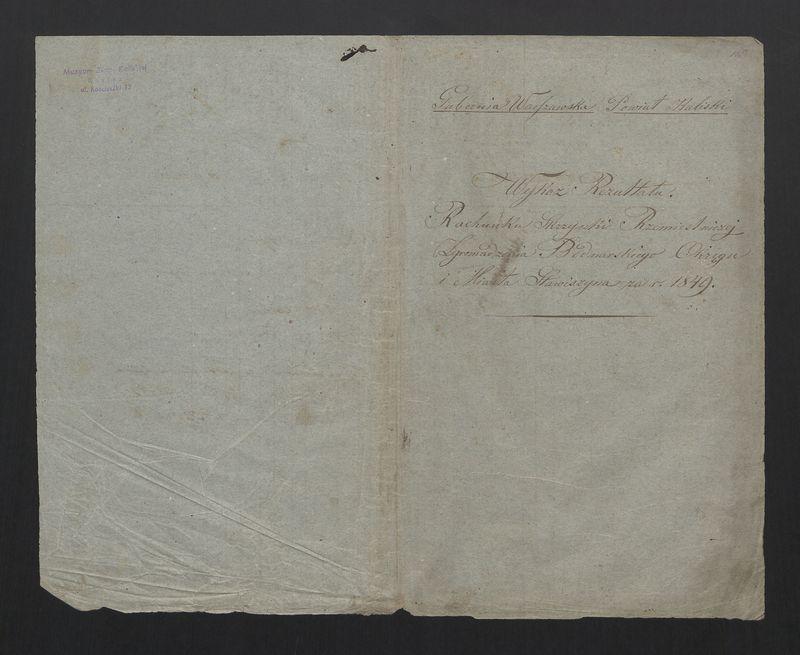 Muzeum Ziemi Kaliskiej
ul. Kościuszki 12
Gubernia Warszawska Powiat Kaliski
Wykaz Rezultatu
Rachunku Skrzynki Rzemieślniczej
Zgromadzenia Bednarskiego Okręgu
i Miasta Stawiszyna za r. 1849.